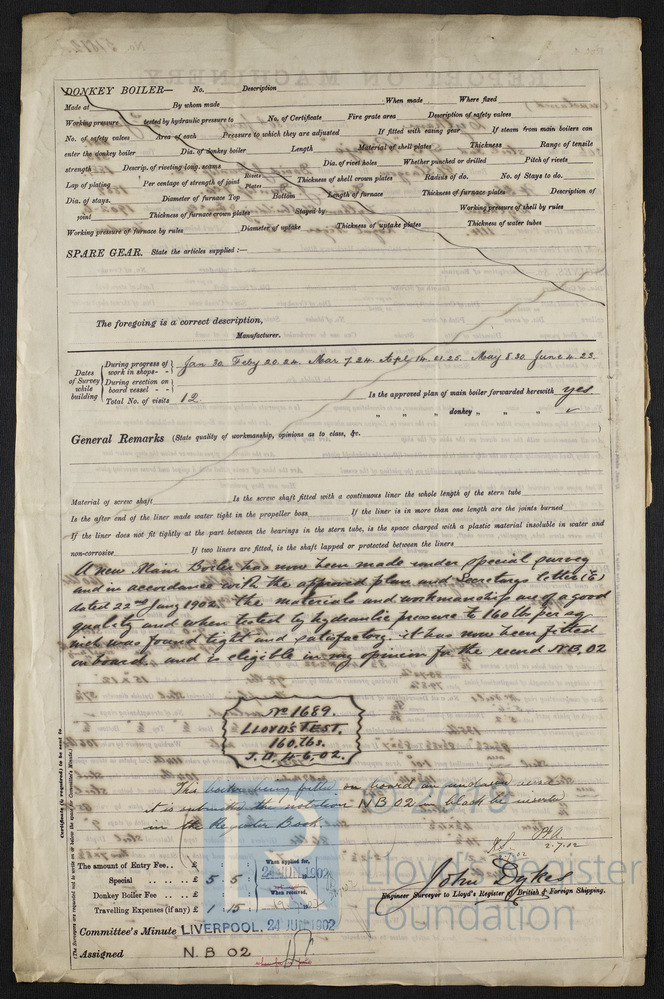 DONKEY BOILER— No. Description
Made at By whom made When made Where fixed
Working pressure tested by hydraulic pressure to No. of Certificate Fire grate area Description of safety valves
No. of safety valves Area of each Pressure to which they are adjusted If fitted with easing gear If steam from main boilers can
enter the donkey boiler Dia. of donkey boiler Length Material of shell plates Thickness Range of tensile
strength Descrip. of riveting long. seams Dia. of rivet holes Whether punched or drilled Pitch of rivets
Lap of plating Per centage of strength of joint Rivets Plates Thickness of shell crown plates Radius of do. No. of Stays to do.
Dia. of stays. Diameter of furnace Top Bottom Length of furnace Thickness of furnace plates Description of
joint Thickness of furnace crown plates Stayed by Working pressure of shell by rules
Working pressure of furnace by rules Diameter of uptake Thickness of uptake plates Thickness of water tubes
SPARE GEAR. State the articles supplied :—
The foregoing is a correct description,
Manufacturer.
Dates of Survey while building
During progress of work in shops - - Jan 30. Feby 20. 24. Mar 7. 24. Apl 14. 21. 25. May 8. 30. June 4. 23.
During erection on board vessel - - -
Total No. of visits 12 Is the approved plan of main boiler forwarded herewith yes.
" " " donkey " " "
General Remarks (State quality of workmanship, opinions as to class, &c.
Material of screw shaft Is the screw shaft fitted with a continuous liner the whole length of the stern tube
Is the after end of the liner made water tight in the propeller boss If the liner is in more than one length are the joints burned
If the liner does not fit tightly at the part between the bearings in the stern tube, is the space charged with a plastic material insoluble in water and
non-corrosive If two liners are fitted, is the shaft lapped or protected between the liners
A new Main Boiler has now been made under special survey
and in accordance with the approved plan and Secretarys letter (E)
dated 22nd Jany 1902. the materials and workmanship are of a good
quality and when tested by hydraulic pressure to 160 lbs per sq
inch was found tight and satisfactory. it has now been fitted
onboard. and is eligible in my opinion for the record N.B. 02
No 1689.
LLOYD'S TEST.
160 lbs.
J.D. 4.6.02.
This boiler being fitted on board an
it is submitted the notation N B 02 in black be inserted
in the Register Book.
2.7.02
Certificate (if required) to be sent to
(The Surveyors are requested not to write on or below the space for Committee's Minute.)
The amount of Entry Fee.. £ : : When applied for,
Special .. .. £ 5 : 5 : 24 JUN 1902
Donkey Boiler Fee .. .. £ : : When received,
Travelling Expenses (if any) £ 1 : 15 :
John Dykes
Engineer Surveyor to Lloyd's Register of British & Foreign Shipping.
Committee's Minute LIVERPOOL. 24 JUN 1902
Assigned N. B 02
© 2018
Lloyd's Register
Foundation